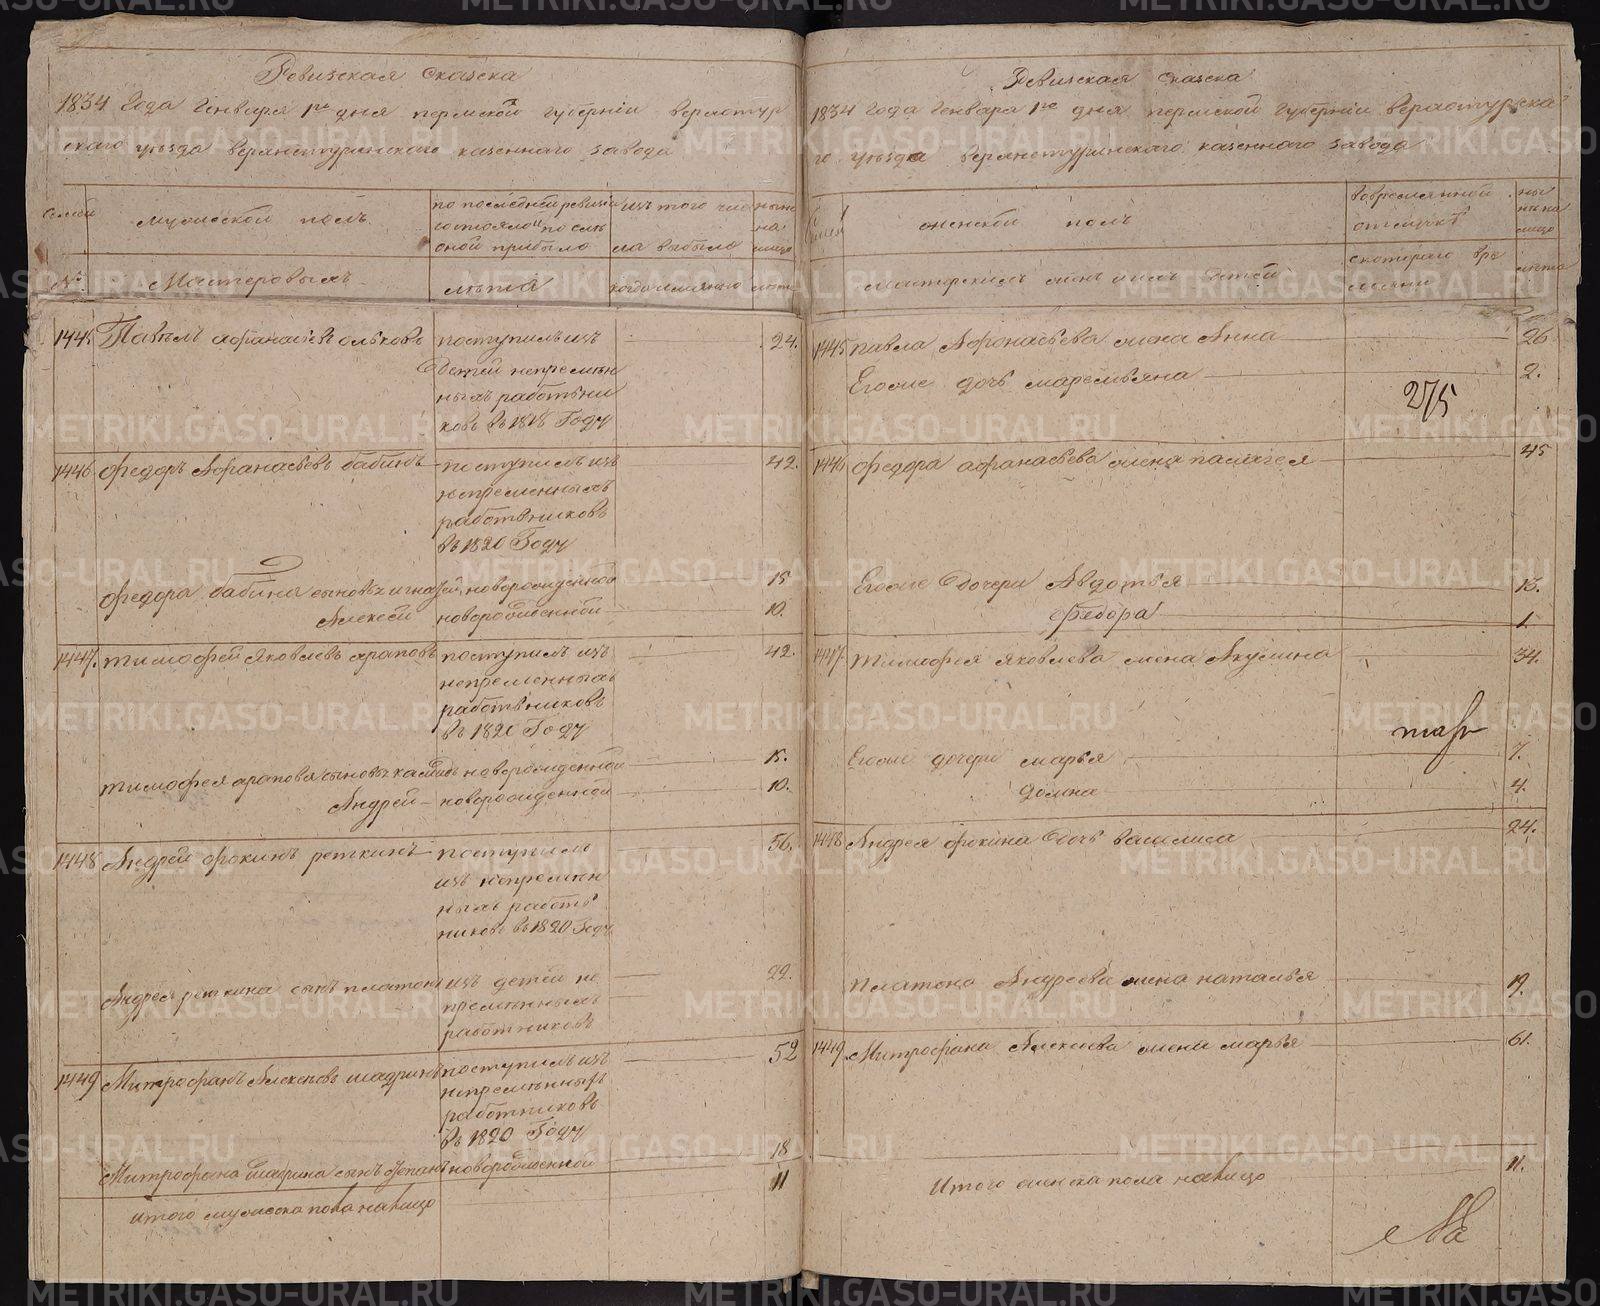 Ревизская сказка
1834 Года Генваря 1го дня пермской губерніи верхотур
скаго уѣзда верхнетуринскаго казеннаго завода
Семьи
мужеской полъ
по последней ревизіи
состояло и после
оной прибыло
изъ того чис
ла выбыло
ныне
на
лицо
№
Мастеровыхъ
лѣта
когда имянно
лѣта
1445 Павелъ афанасьевъ
поступилъ изъ
24.
детей непремѣн
ныхъ работни
ковъ въ 1818 Году
1446 федоръ Афанасьевъ бабинъ
поступилъ изъ
42.
непременныхъ
работниковъ
въ 1820 Году
федора бабина сыновья игнатей новорожденной
15
Алексей новорожденной
10.
1447. тимофей Яковлевъ араповъ
поступилъ изъ
42.
непременныхъ
работниковъ
въ 1820 Году
тимофея арапова сыновья новорожденной
15.
Андрей новорожденной
10.
1448 Андрей фокинъ реткинъ
поступило
56.
изъ непремѣн
ныхъ работ
никовъ въ 1820 Году
Андрея реткина сынъ платонъ
изъ детей не
22.
премѣнныхъ
работниковъ
1449 Митрофанъ Алексѣевъ шадринъ
поступилъ изъ
52
непремѣнныхъ
работниковъ
въ 1820 Году
Митрофана шадрина сынъ степанъ новорожденной
18
итого мужеска пола налицо
11
Ревизская сказка
1834 года Генваря 1го дня пермской губерніи верхотурска
го уѣзда верхнетуринскаго казеннаго завода
женской полъ
вовременной
отлучкѣ
ны
не на
лицо
мастерскихъ женъ и ихъ детей
скотораго вре
мяни
лѣта
1445 павла Афонасьева жена Анна
26
Егоже дочь маремьяна
2.
275
1446 федора афанасьева жена палагея
45
Егоже дочери Авдотья
13.
федора
1
1447 тимофея яковлева жена Акулина
34.
Егоже дочери марья
7.
домна
4.
1448 Андрея фокина дочь василиса
24.
платона Андреева жена наталья
19.
1449 Митрофана Алексѣева жена марья
61.
Итого женска пола налицо
11.
METRIKI.GASO-URAL.RU